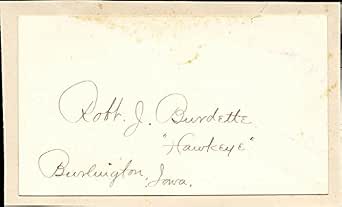 Robt. J. Burdette
"Hawkeye"
Burlington, Iowa.